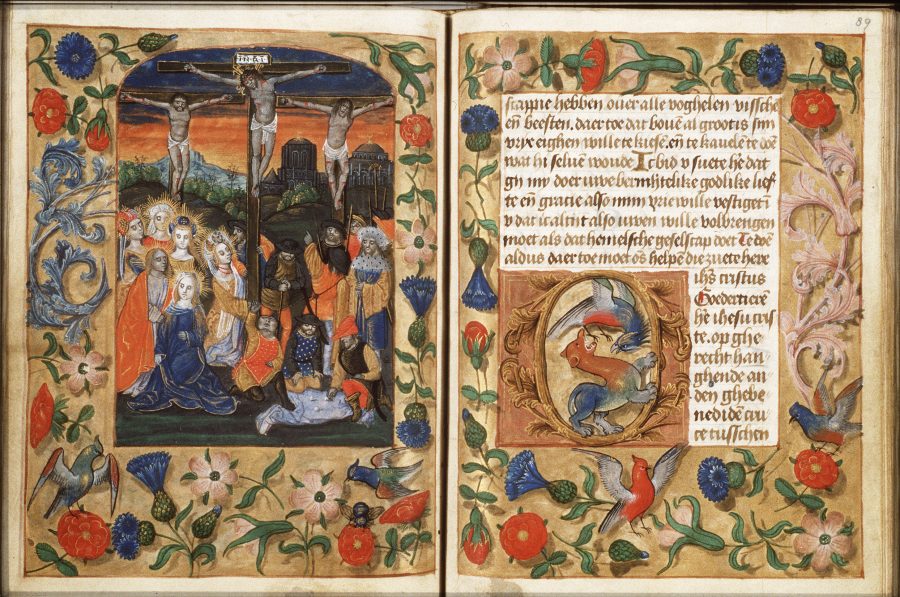 inri
89
scappie hebben ouer alle voghelen vissche
eñ beesten. daer toe dat bouē al groot is sijn
vrye eighen wille te kiesē. eñ te kauelē te doē
wat hi seluen woude Ic bid v suete hē dat
ghi my doer uwe bermhertelike godlike lief
te eñ gracie also mijn vrie wille vestigen
v dat ic altijt also uwen wille volbrengen
moet als dat hemelsche geselscap doet Te doē
aldus daer toe moet ōs helpē die zuete here
ihs cristus
Goedertierē
hē ihesu cris
te. op ghe
recht han
ghende an
den ghebe
nedidē cru
ce tusschen